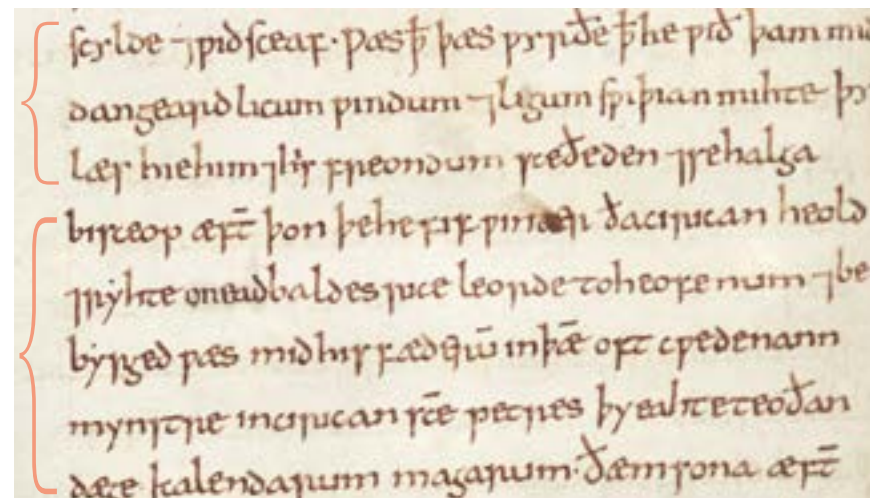 scylde ⁊ ƿið sceaf· ƿæs ꝥ þæs ƿyrðe ꝥ he ƿið þam mid
dangeardlicum ƿindum ⁊ ligum sƿiþian mihte þy
læs hie him ⁊ his freondum sceðeden ⁊ se halga
bisceop æft̄ þon þe he fif ƿinter ða cirican heold
⁊ ryhte on eadbaldes rice leorde to heofenum ⁊ be
byrged ƿæs mid his fædeꞃū in þǣ oft cƿedenann
mynstre in cirican sc̄e petres þy eahteteoðan
dæge kalendarum magarum· ðæm sona æft̄